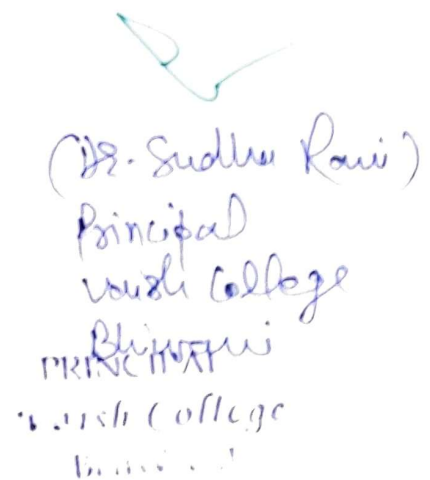 (Dr. Sudha Rani)
Principal
Vaish College
Bhiwani
PRINCIPAL
Vaish College